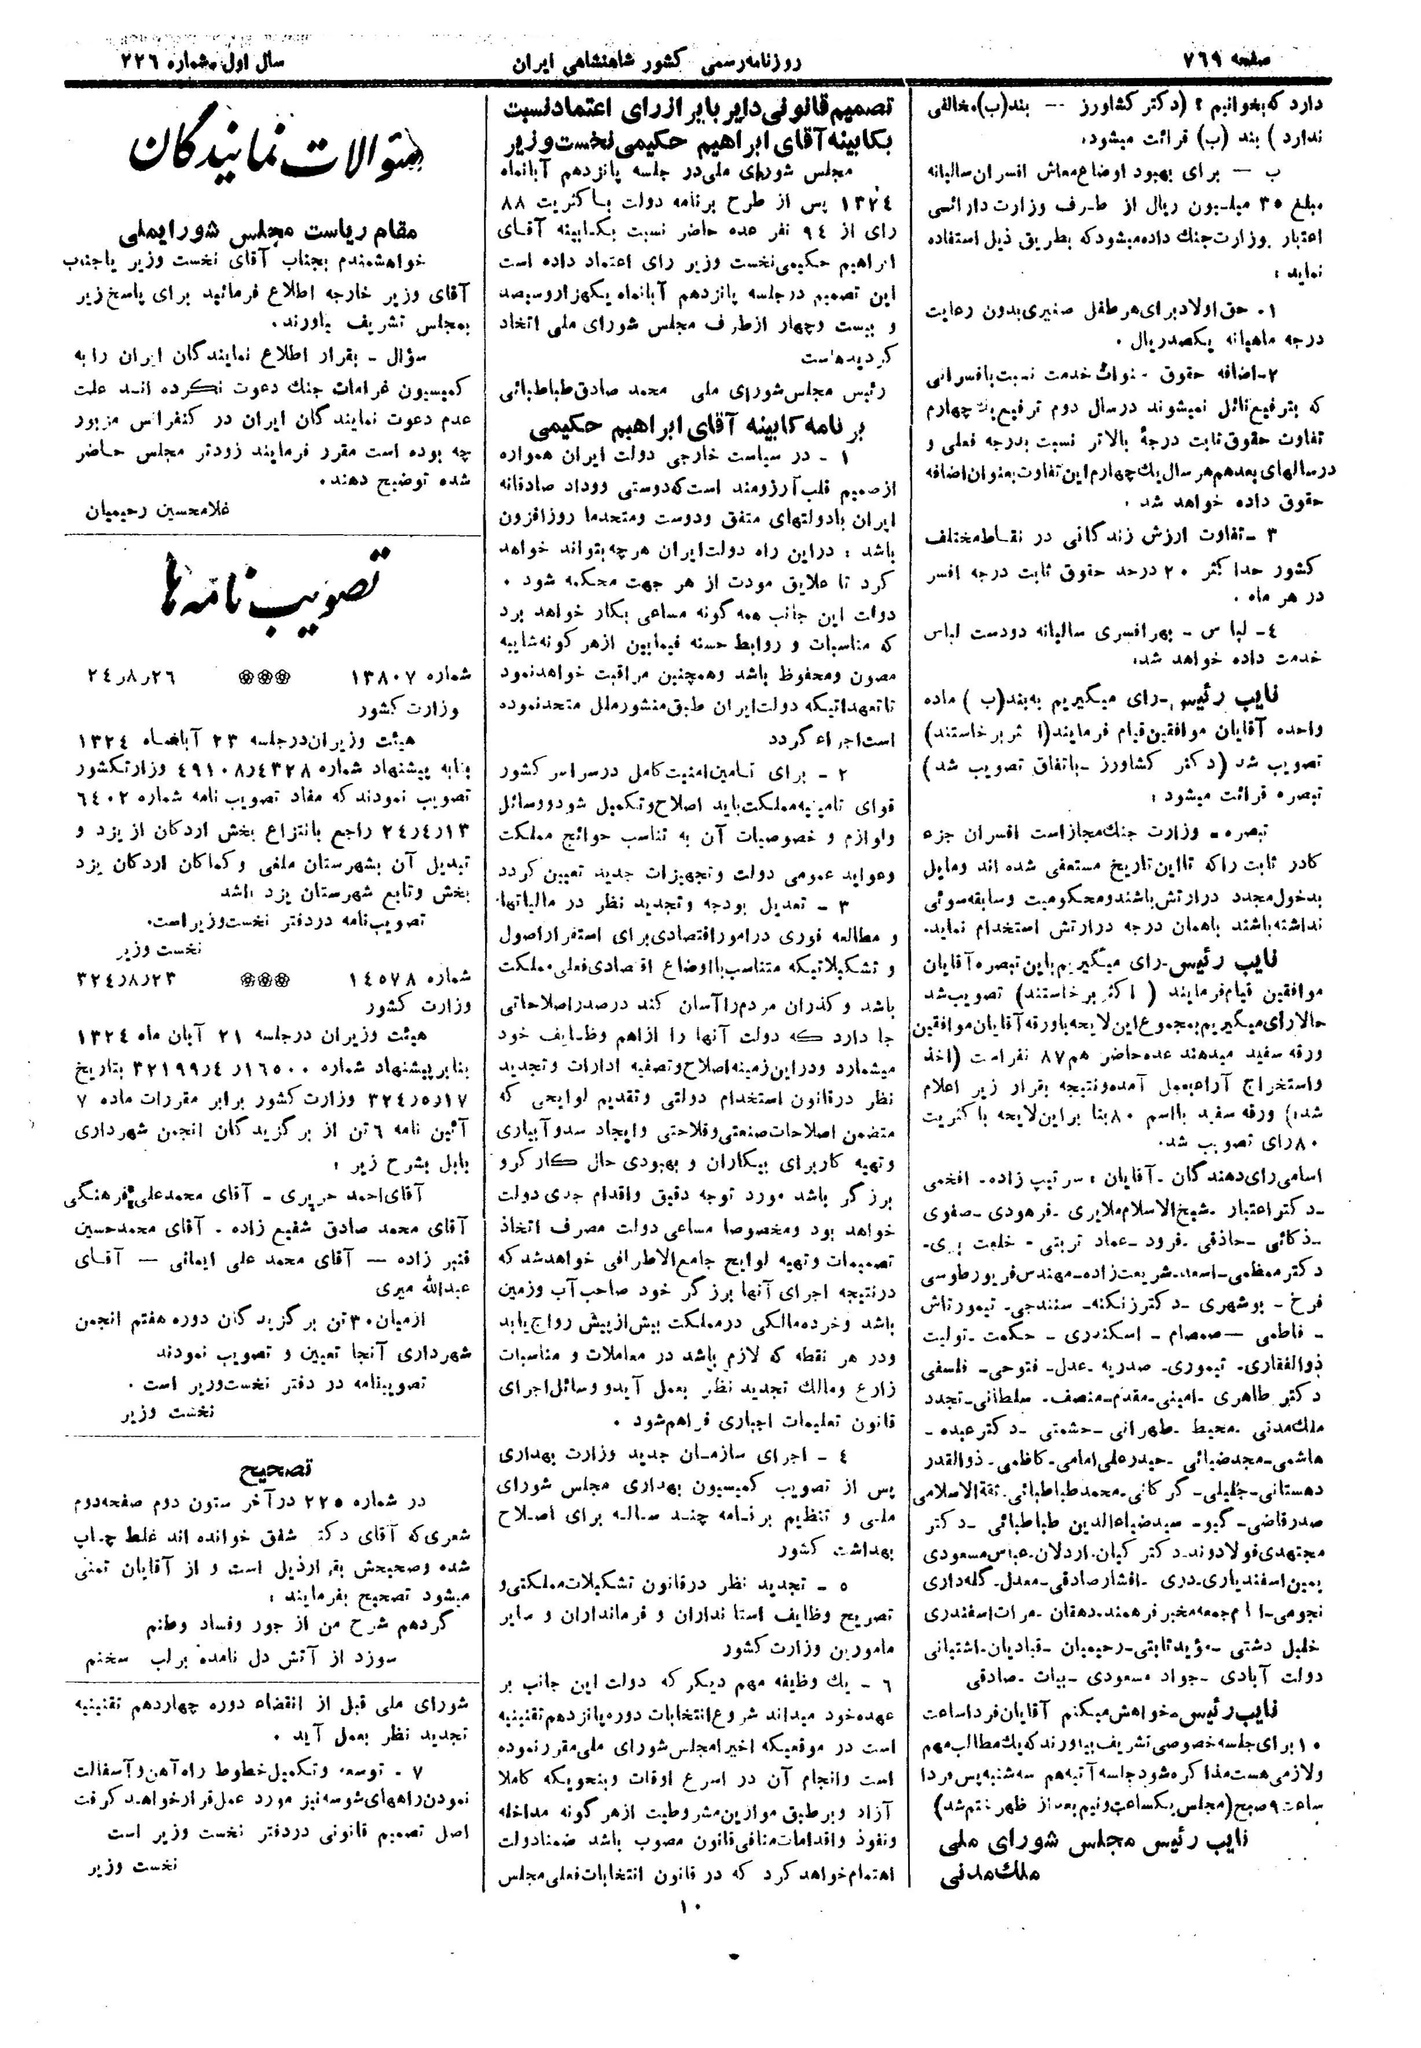 صفحه ۷۶۹
روزنامه رسمی کشور شاهنشاهی ایران
سال اول شماره ۲۲۶
دارد که بخوانیم ؟ (دکتر کشاورز — بند(ب) مخالفی
ندارد ) بند (ب) قرائت میشود:
ب — برای بهبود اوضاع معاش افسران سالیانه
مبلغ ۳۵ میلیون ریال از طرف وزارت دارائی
اعتبار بوزارت جنك داده میشود که بطریق ذیل استفاده
نماید :
۱- حق اولاد برای هر طفل صغیری بدون رعایت
درجه ماهیانه یکصدریال .
۲- اضافه حقوق سنوات خدمت نسبت بافسرانی
که بترفیع نائل نمیشوند در سال دوم ترفیع یك چهارم
تفاوت حقوق ثابت درجهٔ بالاتر نسبت بدرجه فعلی و
در سالهای بعدهم هر سال یك چهارم این تفاوت بعنوان اضافه
حقوق داده خواهد شد .
۳ - تفاوت ارزش زندگانی در نقاط مختلف
کشور حداکثر ۲۰ درصد حقوق ثابت درجه افسر
در هر ماه .
٤- لباس - بهر افسری سالیانه دودست لباس
خدمت داده خواهد شد:
نایب رئیس - رای میگیریم به بند(ب ) ماده
واحده آقایان موافقین قیام فرمایند(اکثر برخاستند)
تصویب شد (دکتر کشاورز - باتفاق تصویب شد )
تبصره قرائت میشود :
تبصره - وزارت جنك مجاز است افسران جزء
کادر ثابت را که تا این تاریخ مستعفی شده اند و مایل
بدخول مجدد در ارتش باشند و محکومیت و سابقه سوئی
نداشته باشند باهمان درجه در ارتش استخدام نماید.
نایب رئیس - رای میگیریم باین تبصره آقایان
موافقین قیام فرمایند ( اکثر برخاستند) تصویب شد
حالا رای میگیریم بمجموع این لایحه با ورقه آقایان موافقین
ورقه سفید میدهند عده حاضر هم ۸۷ نفر است (اخذ
و استخراج آراء بعمل آمده و نتیجه بقرار زیر اعلام
شد:) ورقه سفید با اسم ۸۰ بنا بر این لایحه با کثریت
۸۰ رای تصویب شد.
اسامی رای دهندگان - آقایان : سرتیپ زاده - افخمی
- دکتر اعتبار - شیخ الاسلام ملایری - فرهودی - صفوی
- ذکائی - حاذقی - فرود - عماد تربتی - خلعت بری -
دکتر معظمی - اسعد - شریعت زاده - مهندس فریور طوسی
فرخ - بوشهری - دکتر زنگنه - سنندجی - تیمورتاش
- فاطمی - صمصام - اسکندری - حکمت - تولیت
ذوالفقاری - تیموری - صدریه - عدل - فتوحی - فلسفی
دکتر طاهری - امینی - مقدم - منصف - سلطانی - تجدد
ملك مدنی - محیط - طهرانی - حشمتی - دکتر عبده -
هاشمی - مجد ضیائی - حیدر علی امامی - کاظمی - ذوالقدر
دهستانی - جلیلی - گرکانی - محمد طباطبائی - ثقة الاسلامی
صدر قاضی - گیو - سید ضیاءالدین طباطبائی - دکتر
مجتهدی فولادوند - دکتر کیان - اردلان - عباس مسعودی
یمین اسفندیاری - دری - افشار صادقی - معدل - گله داری
نجومی - امام جمعه - مخبر فرهمند - دهقان - مرات اسفندری
خلیل دشتی - مؤید ثابتی - رحیمیان - قبادیان - اشتیانی
دولت آبادی - جواد مسعودی - بیات - صادقی
نایب رئیس - خواهش میکنم آقایان فردا ساعت
۱۰ برای جلسه خصوصی تشریف بیاورند که یك مطالب مهم
و لازمی هست مذاکره شود جلسه آتیه هم سه شنبه پس فردا
ساعت ۹ صبح (مجلس یکساعت و نیم بعد از ظهر ختم شد)
نایب رئیس مجلس شورای ملی
ملك مدنی
تصمیم قانونی دایر بابراز رای اعتماد نسبت
بکابینه آقای ابراهیم حکیمی نخست وزیر
مجلس شورای ملی در جلسه پانزدهم آبانماه
۱۳۲٤ پس از طرح برنامه دولت با کثریت ۸۸
رای از ۹٤ نفر عده حاضر نسبت بکابینه آقای
ابراهیم حکیمی نخست وزیر رای اعتماد داده است
این تصمیم در جلسه پانزدهم آبانماه یکهزار و سیصد
و بیست و چهار از طرف مجلس شورای ملی اتخاذ
گردیده است
رئیس مجلس شورای ملی محمد صادق طباطبائی
برنامه کابینه آقای ابراهیم حکیمی
۱ - در سیاست خارجی دولت ایران همواره
از صمیم قلب آرزومند است که دوستی و وداد صادقانه
ایران با دولتهای متفق و دوست و متحدما روز افزون
باشد : در این راه دولت ایران هر چه بتواند خواهد
کرد تا علایق مودت از هر جهت محکمه شود .
دولت این جانب همه گونه مساعی بکار خواهد برد
که مناسبات و روابط حسنه فیمابین از هر گونه شایبه
مصون و محفوظ باشد و همچنین مراقبت خواهد نمود
تا تعهداتیکه دولت ایران طبق منشور ملل متحد نموده
است اجراء گردد
۲ - برای تامین امنیت کامل در سراسر کشور
قوای تامینیه مملکت باید اصلاح و تکمیل شود و وسائل
و لوازم و خصوصیات آن به تناسب حوائج مملکت
و عواید عمومی دولت و تجهیزات جدید تعیین گردد
۳ - تعدیل بودجه و تجدید نظر در مالیاتها
و مطالعه فوری در امور اقتصادی برای استقرار اصول
و تشکیلاتیکه متناسب با اوضاع اقتصادی فعلی مملکت
باشد و گذران مردم را آسان کند در صدر اصلاحاتی
جا دارد که دولت آنها را از اهم وظایف خود
میشمارد و در این زمینه اصلاح و تصفیه ادارات و تجدید
نظر در قانون استخدام دولتی و تقدیم لوایحی که
متضمن اصلاحات صنعتی و فلاحتی و ایجاد سد و آبیاری
و تهیه کار برای بیکاران و بهبودی حال کارگر و
برزگر باشد مورد توجه دقیق و اقدام جدی دولت
خواهد بود و مخصوصا مساعی دولت مصرف اتخاذ
تصمیمات و تهیه لوایح جامع الاطرافی خواهد شد که
در نتیجه اجرای آنها برزگر خود صاحب آب و زمین
باشد و خرده مالکی در مملکت بیش از پیش رواج یابد
و در هر نقطه که لازم باشد در معاملات و مناسبات
زارع و مالك تجدید نظر بعمل آید و وسائل اجرای
قانون تعلیمات اجباری فراهم شود .
٤ - اجرای سازمان جدید وزارت بهداری
پس از تصویب کمیسیون بهداری مجلس شورای
ملی و تنظیم برنامه چند ساله برای اصلاح
بهداشت کشور
۵ - تجدید نظر در قانون تشکیلات مملکتی و
تصریح وظایف استانداران و فرمانداران و سایر
مامورین وزارت کشور
٦ - یك وظیفه مهم دیگر که دولت این جانب بر
عهده خود میداند شروع انتخابات دوره پانزدهم تقنینیه
است در موقعیکه اخیرا مجلس شورای ملی مقرر نموده
است و انجام آن در اسرع اوقات و بنحویکه کاملا
آزاد و بر طبق موازین مشروطیت از هر گونه مداخله
و نفوذ و اقدامات منافی قانون مصوب باشد ضمنا دولت
اهتمام خواهد کرد که در قانون انتخابات فعلی مجلس
سئوالات نمایندگان
مقام ریاست مجلس شورایملی
خواهشمندم بجناب آقای نخست وزیر یا جناب
آقای وزیر خارجه اطلاع فرمائید برای پاسخ زیر
بمجلس تشریف یاورند.
سؤال - بقرار اطلاع نمایندگان ایران را به
کمیسیون غرامات جنك دعوت نکرده اند علت
عدم دعوت نمایندگان ایران در کنفرانس مزبور
چه بوده است مقرر فرمایند زودتر مجلس حاضر
شده توضیح دهند.
غلامحسین رحیمیان
تصویب نامه ها
شماره ۱۳۸۰۷ ❀❀❀ ۲٤ر۸ر۲٦
وزارت کشور
هیئت وزیران در جلسه ۲۳ آبانماه ۱۳۲٤
بنابه پیشنهاد شماره ٤۳۲۸ر٤۹۱۰۸ وزارتکشور
تصویب نمودند که مفاد تصویب نامه شماره ٦٤۰۲
۲٤ر٤ر۱۳ راجع بانتزاع بخش اردکان از یزد و
تبدیل آن بشهرستان ملغی و کماکان اردکان یزد
بخش و تابع شهرستان یزد باشد
تصویب نامه در دفتر نخست وزیر است.
نخست وزیر
شماره ۱٤۵۷۸ ❀❀❀ ۳۲٤ر۸ر۲۳
وزارت کشور
هیئت وزیران در جلسه ۲۱ آبان ماه ۱۳۲٤
بنابر پیشنهاد شماره ۱٦۵۰۰ر٤ر۳۲۱۹۹ بتاریخ
۳۲٤ر۵ر۱۷ وزارت کشور برابر مقررات ماده ۷
آئین نامه ٦ تن از برگزیدگان انجمن شهرداری
بابل بشرح زیر :
آقای احمد حریری - آقای محمد علی فرهنگی
آقای محمد صادق شفیع زاده - آقای محمد حسین
قنبر زاده — آقای محمد علی ایمانی — آقای
عبدالله میری
از میان ۳۰ تن برگزیدگان دوره هفتم انجمن
شهرداری آنجا تعیین و تصویب نمودند
تصویبنامه در دفتر نخست وزیر است .
نخست وزیر
تصحیح
در شماره ۲۲۵ در آخر ستون دوم صفحه دوم
شعری که آقای دکتر شفق خوانده اند غلط چاپ
شده و صحیحش بقرار ذیل است و از آقایان تمنی
میشود تصحیح بفرمایند :
گر دهم شرح من از جور و فساد وطنم
سوزد از آتش دل نامده بر لب سخنم
شورای ملی قبل از انقضاء دوره چهاردهم تقنینیه
تجدید نظر بعمل آید .
۷ - توسعه و تکمیل خطوط راه آهن و آسفالت
نمودن راههای شوسه نیز مورد عمل قرار خواهد گرفت
اصل تصمیم قانونی در دفتر نخست وزیر است
نخست وزیر
۱۰